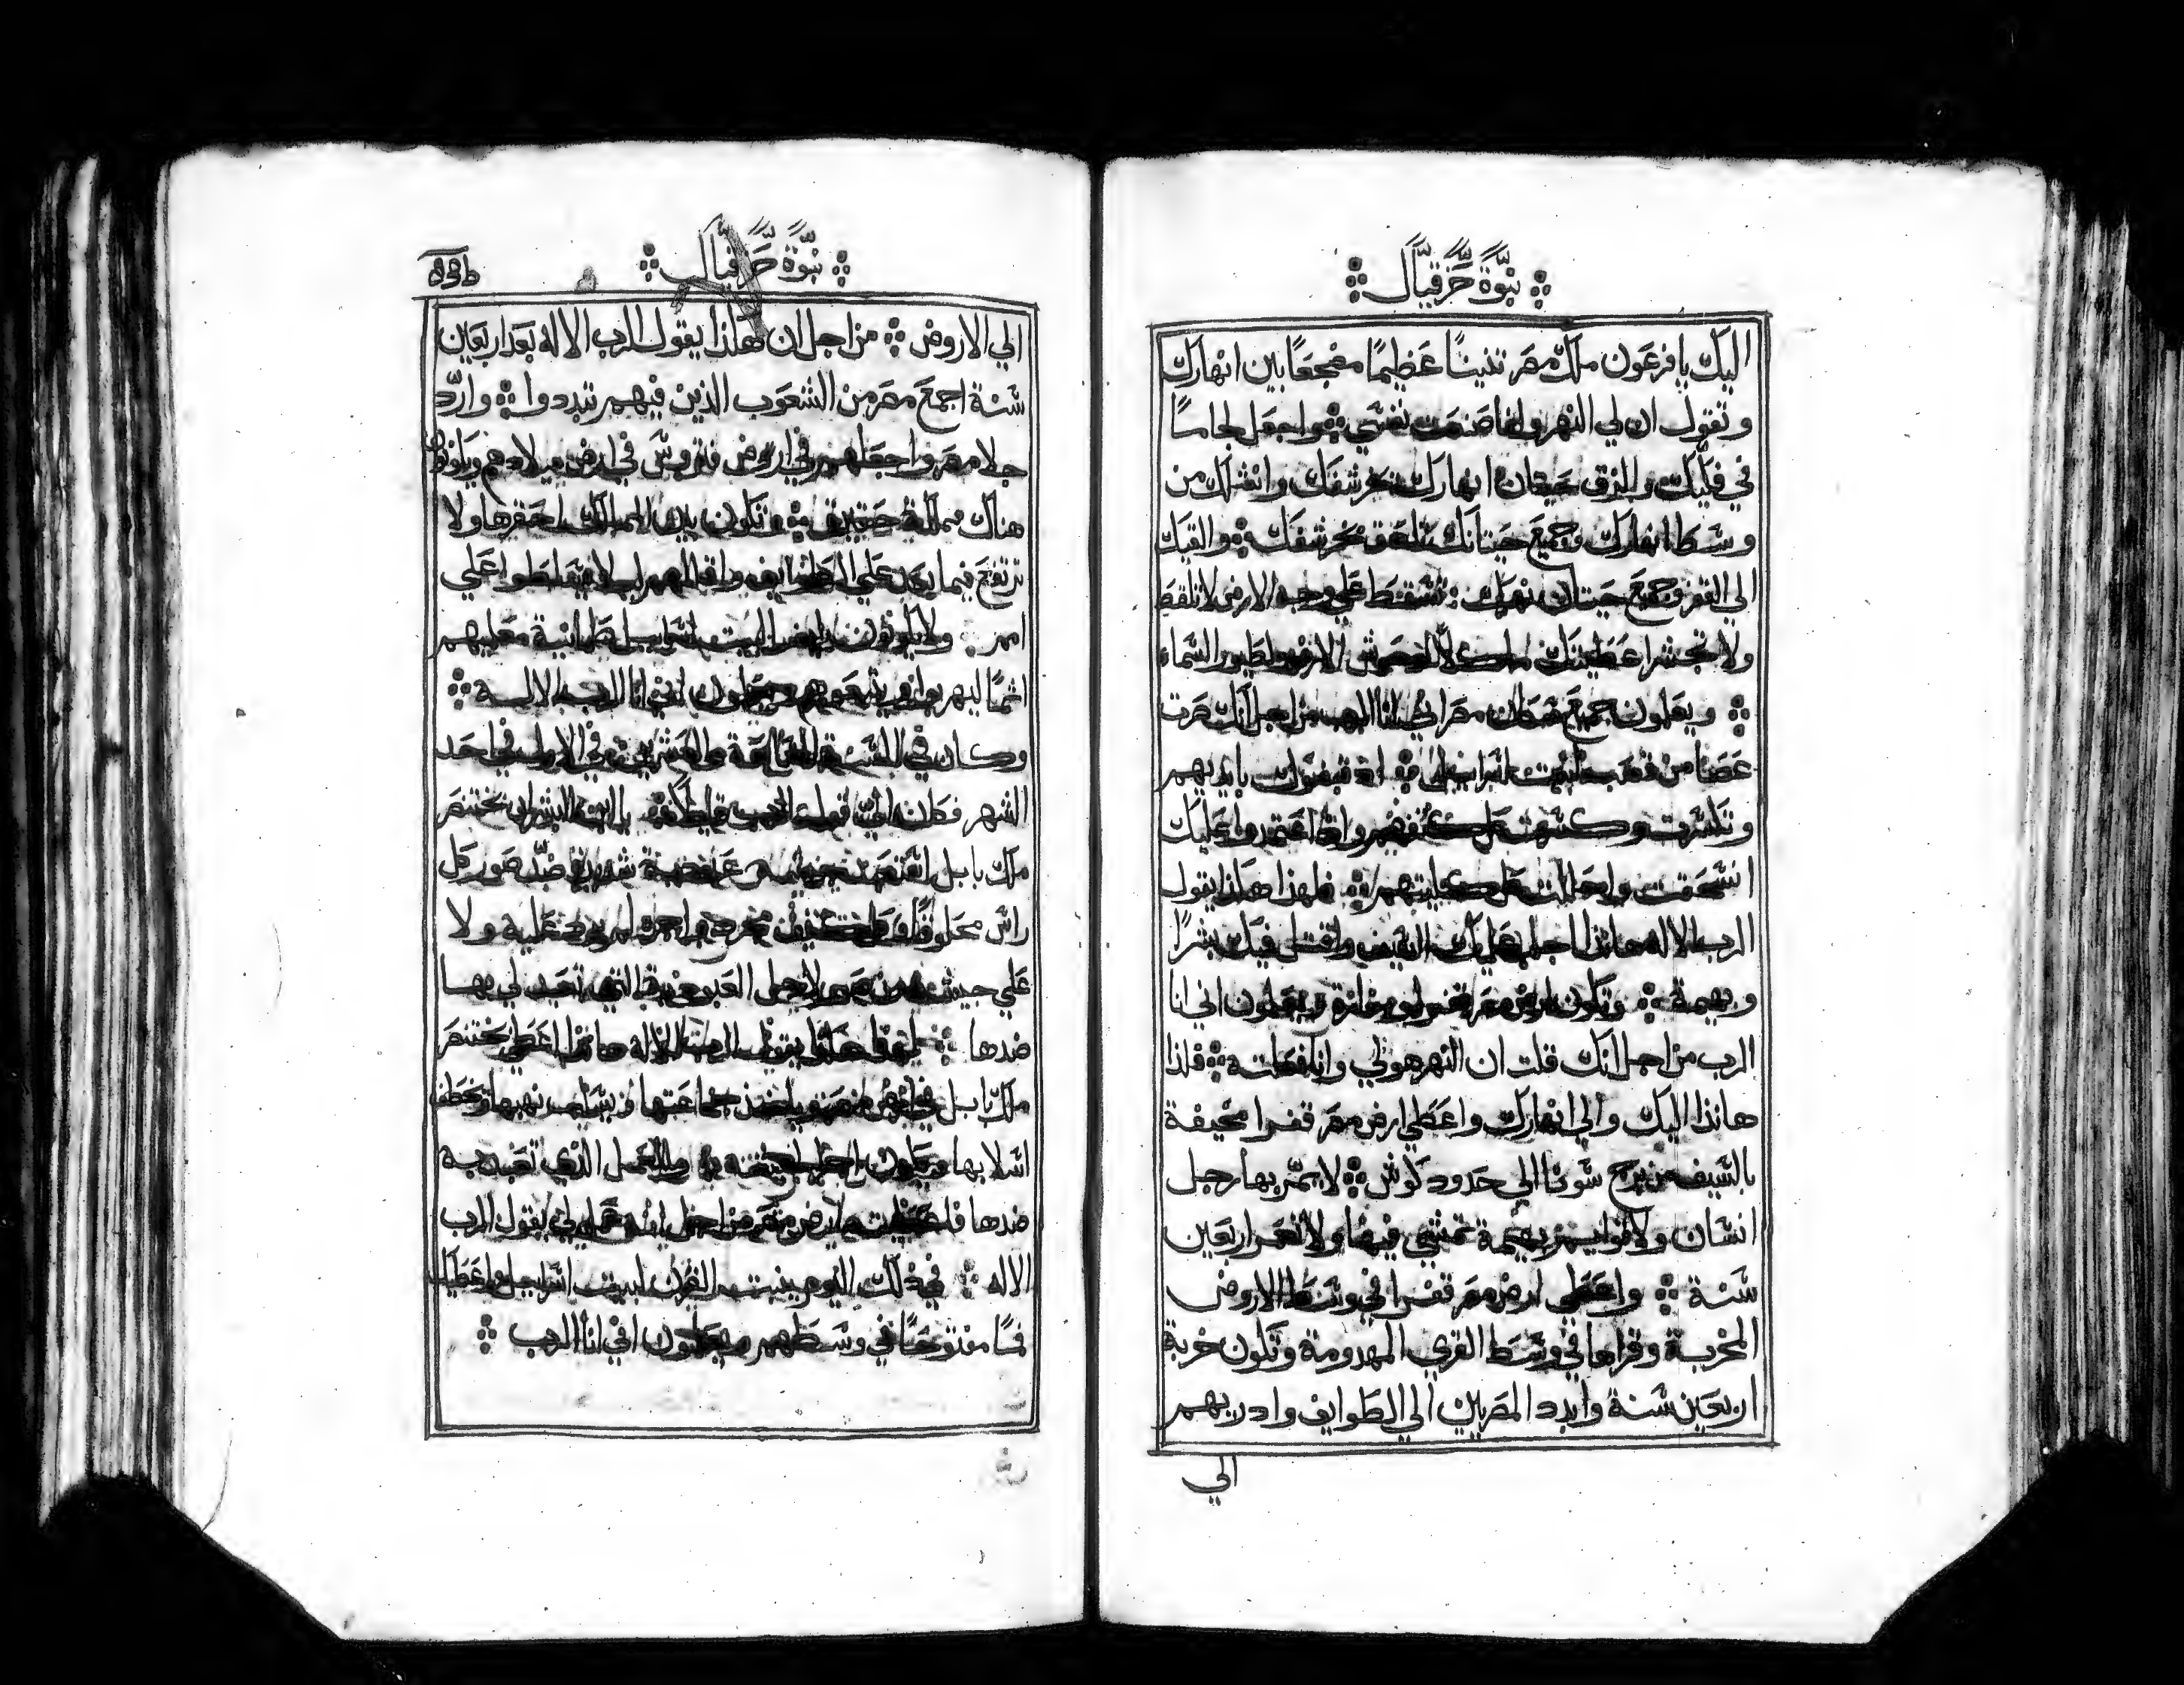 نبّوة حَزقيّال
اليَك يا فرعَون ملك مصَر تنينًا عَظيمًا مضجعًا بين انهارك
وتقول ان لي النهر وانا صَنعت نفسَي واجعَل لجامًا
في فكيك والزق حيتان انهارك بحرشفك وانشلك من
وسَط انهارك وجميعَ حيتانك تلصَق بحرشفك والقيك
الي القفر وجميعَ حيتان نهرك تسَقط عَلي وجه الارض لا تلقط
ولا تحشر اعَطيتك ماكلًا لوحوش الارض ولطيور السَماء
ويعَلمون جميعَ سَكان مصَر اني انا الرب من اجل انك صَرت
عَصَا من قصَب لبيت اسَراييل اذ قبضوك بايديهم
وتكسَرت وكسَرت كل كتفهم واذا اعَتمدوا عَليك
انسَحقت وانحَللت كل كليتهم فلهذا هكذا يقول
الرب الاله هانذا اجلب عَليك السَيف واقتل فيك بشرًا
وبهيمة وتكون ارض مصَر قفرا وخرابة ويعَلمون اني انا
الرب من اجل انك قلت ان النهر هو لي وانا فعَلته فلذا
هانذا اليك والي انهارك واعَطي ارض مصَر قفرا مخيفة
بالسَيف من برج سَونا الي حَدود كوش لا يمّر بها رجل
انسَان ولا قوايم بهيمة تمشي فيها ولا تعَمر اربعَين
سَنة واعَطي ارض مصَر قفرا في وسَط الاروض
المخربة وقراها في وسَط القري المهدومة وتكون خربة
اربعَين سَنة وابدد المصَريين الي الطوايف واذريهم
الي
نبّوة حَزقيّال
الي الاروض من اجل ان هكذا يقول الرب الاله بعَد اربعَين
سَنة اجمعَ مصَر من الشعَوب الذين فيهم تبددوا وارّد
جلا مصَر واجعَلهم في ارض فتروسَ في ارض ميلادهم ويكونوا
هناك مملكة حَقيرة وتكون بين الممالك احَقرها ولا
ترتفعَ فيما بعَد عَلي الطوايف واقللهم ليلا يتسَلطوا عَلي
امم ولا يكونون لبيت اسَراييل طمانية معَليهم
اثمًا ليهربوا ويتبعَوهم ويعَلمون اني انا الرب الاله
وكان في السَنة السَابعَة والعَشرين في الاول في احَد
الشهر فكان اليّ قول الرب قايلًا يا ابن البشر ان بختنصَر
ملك بابل اسَتخدم جيشه عَبودية شديدة ضدّ صَور كل
راسَ محَلوقًا وكل كتف مجرد واجرة لم ترد عَليه ولا
عَلي جيشه من صَور لاجل العَبودية التي تعَبد لي بها
ضدها لهذا هكذا يقول الرب الاله هانذا اعَطي بختنصَر
ملك بابل في ارض مصَر وياخذ جماعَتها ويسَلب نهبها ويخطف
اسَلابها ويكون اجرا لجيشه والعَمل الذي تعَبد به
ضدها فاعَطيت له ارض مصَر من اجل انه عَمل لي يقول الرب
الاله في ذلك اليوم ينبت القرن لبيت اسَراييل واعَطيك
فمًا مفتوحًا في وسَطهم ويعَلمون اني انا الرب